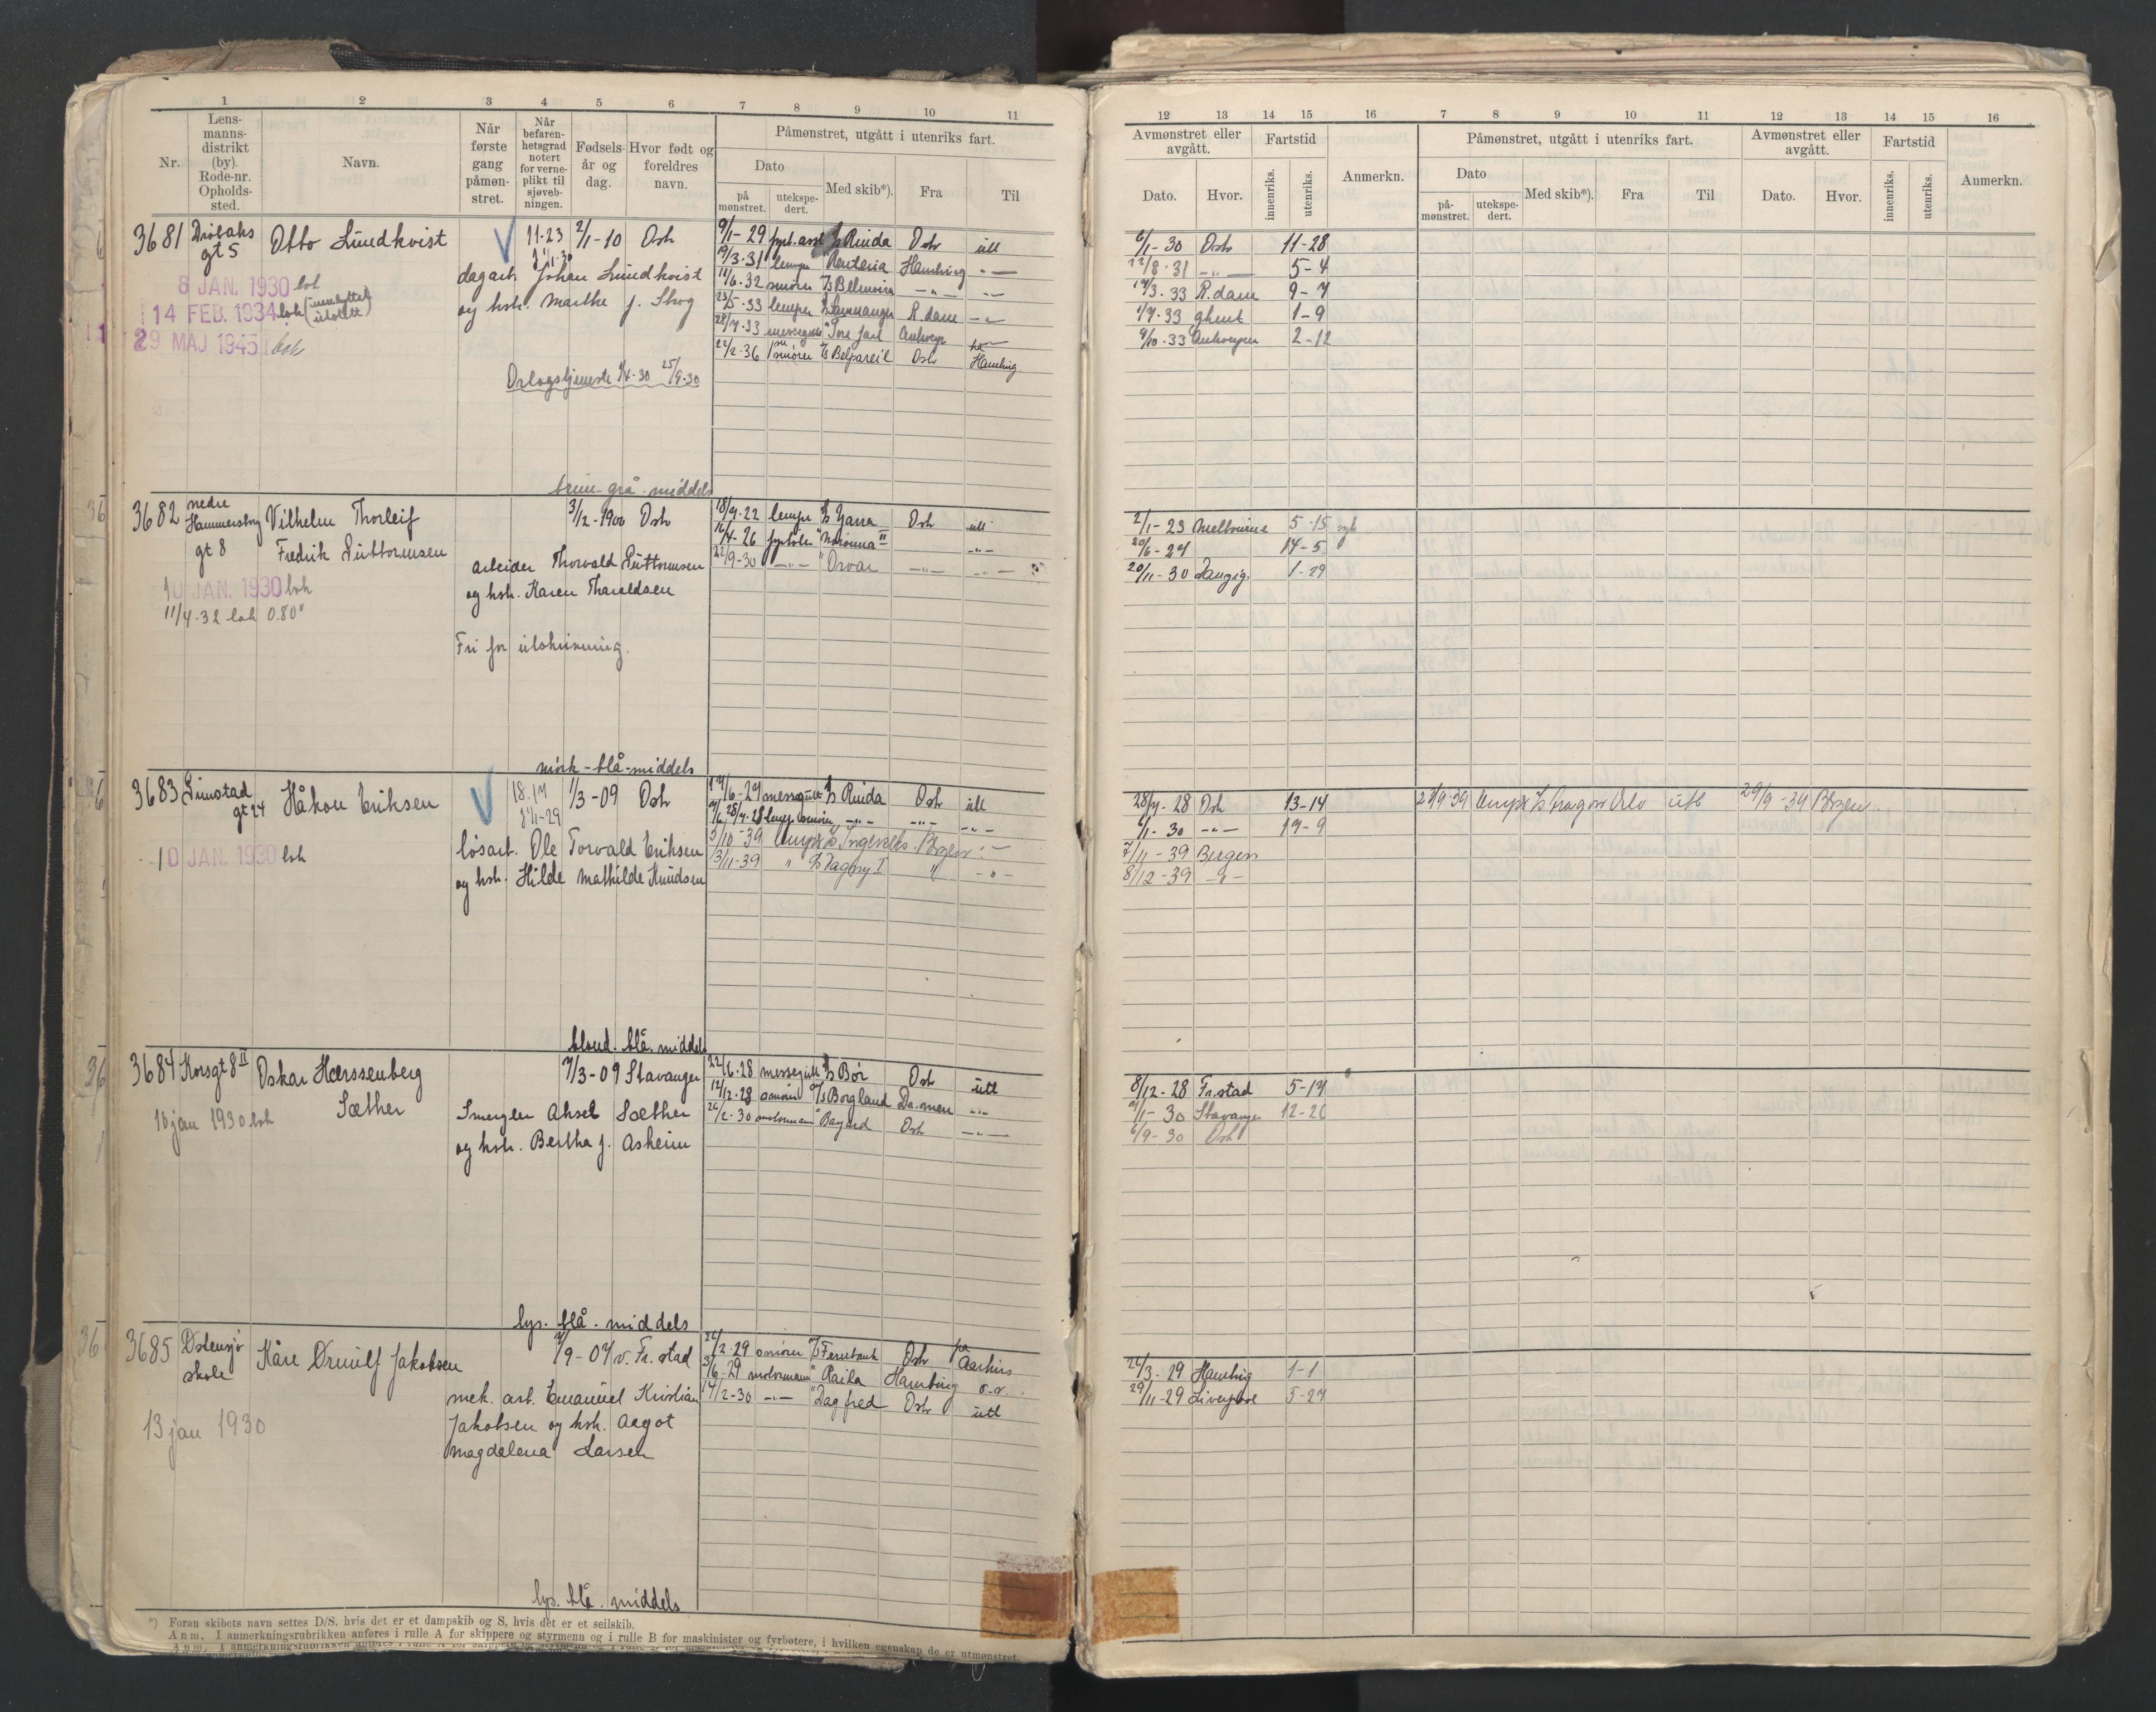 1 2 3 4 5 6 7 8 9 10 11
Nr.
Lens-
manns-
distrikt
(by).
Rode-nr.
Opholds-
sted.
Navn.
Når
første
gang
påmøn-
stret.
Når
befaren-
hetsgrad
notert
for verne-
plikt til
sjøveb-
ningen.
Fødsels-
år og
dag.
Hvor født og
foreldres
navn.
Påmønstret, utgått i utenriks fart.
Dato
på
mønstret.
utekspe-
dert.
Med skib*).
Fra
Til
3681 Drøbaks
gt 5
Otto Lundkvist
11-23 2/1-10 Oslo
dagarb. Johan Lundkvist
og hstr. Marthe f. Skog
8 JAN. 1930
14 FEB. 1934
29 MAJ 1945
25/9-30
9/1-29 Rinda Oslo utl
19/3.31 lemper Hamburg -"-
11/6.32 smører -"- -"-
23/5.33 lemper R.dam -"-
28/7.33 Tore Jarl Antwerp
22/2.36 smører Belpareil Oslo Hamburg
brun-grå-middels
3682 nedre
Hammersborg
gt 8
Vilhelm Thorleif
Fredrik Guttormsen
3/12-1900 Oslo
arbeider Thorvald Guttormsen
og hstr. Karen Tharaldsen
Fri for utskrivning.
10 JAN. 1930
11/4.32 0.80
18/7.22 lemper Yarra Oslo utl
16/4-26 fyrbøter "Noronna" -"-
22/9-30 -"- "Orvar -"- -"-
mørk-blå-middels
3683 Grimstad
gt 24
Håkon Eriksen
18.17 1/3-09 Oslo
løsarb. Ole Torvald Eriksen
og hstr. Hilde Mathilde Knudsen
10 JAN. 1930
Rinda Oslo utl
-"- -"- -"-
5/10-39 Bergen -"-
13/11-39 " Dagny I " -"-
blond. blå. middels
3684 Korsgt 8 II
Oskar Hærssenberg
Sæther
7/3-09 Stavanger
Smergler Aksel Sæther
og hstr. Bertha f. Asheim
10 jan 1930
22/6.28 messegutt Bør Oslo utl
12/12.28 Borgland Da.men -"-
26/2.30 motormann "Bayard Oslo -"-
lys. blå. middels
3685 Østensjø
skole
Kåre Ørnulf Jakobsen
7/9-07 v. Fr.stad
mek. arb. Emanuel Kristian
Jakobsen og hstr. Aagot
Magdalena Larsen
13 jan 1930
26/2.29 Fernbank Oslo på Aarhus
3/6-29 motormann "Raila Hamburg o.v.
14/2-30 -"- "Dagfred Oslo utl
lys. blå. middels
*) Foran skibets navn settes D/S, hvis det er et dampskib og S, hvis det er et seilskib.
Anm. I anmerkningsrubrikken anføres i rulle A for skippere og styrmenn og i rulle B for maskinister og fyrbøtere, i hvilken egenskap de er utmønstret.
12 13 14 15 16 7 8 9 10 11 12 13 14 15 16
Avmønstret eller
avgått.
Dato. Hvor.
Fartstid
innenriks. utenriks.
Anmerkn.
Påmønstret, utgått i utenriks fart.
Dato
på-
mønstret.
utekspe-
dert.
Med skib*). Fra Til
Avmønstret eller
avgått.
Dato. Hvor.
Fartstid
innenriks. utenriks.
Anmerkn.
6/1-30 Oslo 11-28
22/8.31 -"- 5-4
17/3.33 R.dam 9-7
1/7.33 Ghent 1-9
9/10.33 Antwerpen 2-12
2/1-23 Melbourne 5-15
20/6-27 14-5
20/11-30 Danzig. 1-29
28/7-28 Oslo 13-14
6/1-30 -"- 17-9
7/11-39 Bergen
8/12-39 -"-
Oslo utl 29/9-39 Bergen
8/12-28 Fr.stad 5-17
7/1-30 Stavanger 12-26
6/9-30 Oslo
26/3.29 Hamburg 1-1
29/11-29 Liverpool 5-27